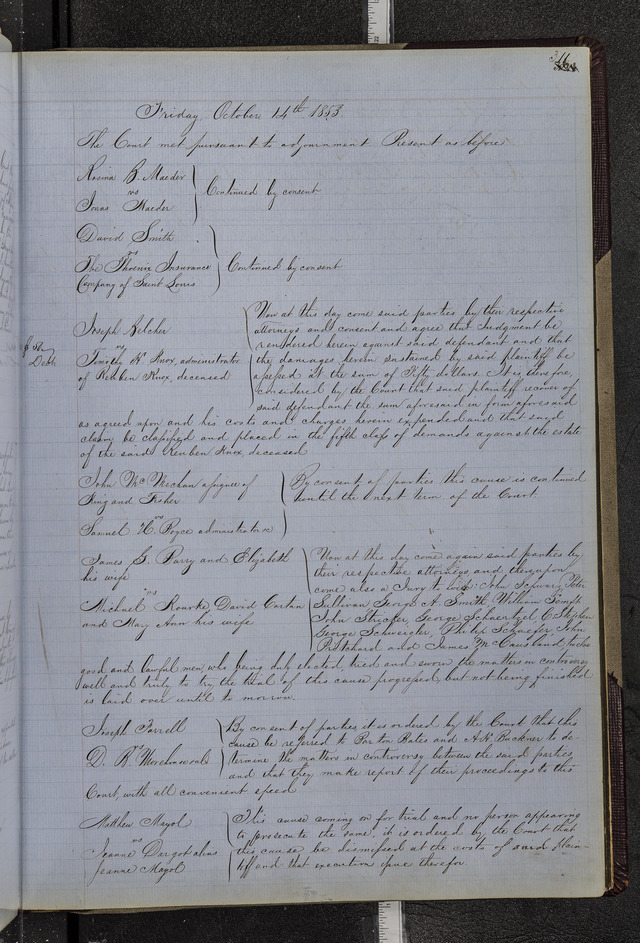 Friday October 14th 1853
The Court met pursuant to adjournment Present as before
Rosina B. Maeder
vs
Jonas Maeder
Continued by consent
David Smith
vs
The Phoenix Insurance
Company of Saint Louis
Continued by consent
Debt
Joseph Belcher
vs
Timothy R. Knox, administrator
of Reuben Knox, deceased
Now at this day come said parties by their respective
attorneys and consent and agree that Judgment be
rendered herein against said defendant and that
the damages herein sustained by said plaintiff be
assessed at the sum of Fifty dollars. It is therefore,
considered by the Court that said plaintiff recover of
said defendant the sum aforesaid in form aforesaid
as agreed upon and his costs and charges herein expended and that said
claim be classified and placed in the fifth class of demands against the estate
of the said Reuben Knox, deceased
John McMechan assignee of
King and Fisher
vs
Samuel H. Boyce administrator
By consent of parties this cause is continued
until the next term of the Court.
James G. Parry and Elizabeth
his wife
vs
Michael Rourke, David
and Mary Ann his wife
Now at this day come again said parties by
their respective attorneys, and thereupon
come also a Jury to wit: John Schwarz, Peter
Sullivan George A. Smith, William
John George Schaertzel, C.
George Schweigler, Philip Schaefer, John
Pritchard and James McCausland, twelve
good and lawful men who being duly elected, tried and sworn the matters in controversy
well and truly to try the trial of this cause progressed, but not being finished
is laid over until to morrow.
Joseph Farrell
D. R.
By consent of parties it is ordered by the Court that this
cause be referred to Barton Bates and A.H. Buckner to de-
termine the matters in controversy between the said parties
and that they make report of their proceedings to this
Court, with all convenient speed
Matthew Mayol
vs
Jeanne Dargot alias
Jeanne Mayol
This cause coming on for trial and no person appearing
to prosecute the same, it is ordered by the Court that
this cause be dismissed at the costs of said plain-
tiff and that execution issue therefor.